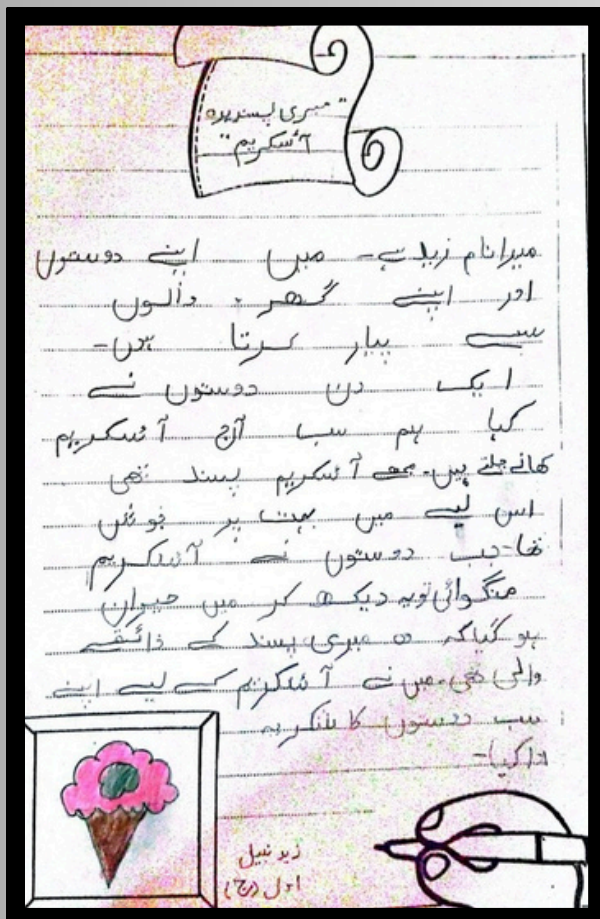 "میری پسندیدہ
آئسکریم"
میرا نام زید ہے۔ میں اپنے دوستوں
اور اپنے گھر والوں
سے پیار کرتا ہوں۔
ایک دن دوستوں نے
کہا ہم سب آج آئسکریم
کھانے چلتے ہیں۔ مجھے آئسکریم پسند تھی
اس لیے میں بہت پر جوش
تھا۔ جب دوستوں نے آئسکریم
منگوائی تو یہ دیکھ کر میں حیران
ہو گیا کہ وہ میری پسند کے ذائقے
والی تھی۔ میں نے آئسکریم کے لیے اپنے
سب دوستوں کا شکریہ
ادا کیا۔
زید نبیل
اول (ج)